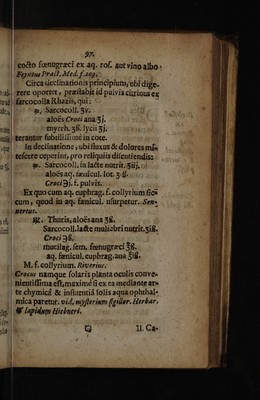 97.
cocto fœnugræci ex aq. ros. aut vino albo.
Feynius Pract. Med. f. 109.
Circa declinationis principium, ubi dige-
rere oportet, præstabit id pulvis citrinus ex
sarcocolla Rhazis, qui:
℞. Sarcocoll. ʒv.
aloës Croci ana ʒj.
myrrh. ʒß. lycii ʒj.
terantur subtilissimè in cote.
In declinatione, ubi fluxus & dolores mi-
tescere ceperint, pro reliquiis discutiendis:
℞. Sarcocoll. in lacte nutrit. ʒiij.
aloës aq. fœnicul. lot. ʒß.
Croci ℈j. f. pulvis.
Ex quo cum aq. euphrag. f. collyrium sic-
cum, quod in aq. fœnicul. usurpetur. Sen-
nertus.
℞. Thuris, aloës ana ʒß.
Sarcocoll. lacte muliebri nutrit. ʒiß.
Croci ℈ß.
mucilag. sem. fœnugræci ℥ß.
aq. fœnicul. euphrag. ana ℥iß.
M. f. collyrium. Riverius.
Crocus namque solaris planta oculis conve-
nientissima est, maximè si ex ea mediante ar-
te chymicâ & influentiâ solis aqua ophthal-
mica paretur. vid. mysterium sigillor. Herbar.
& lapidum Hiebneri.
G
II. Ca-